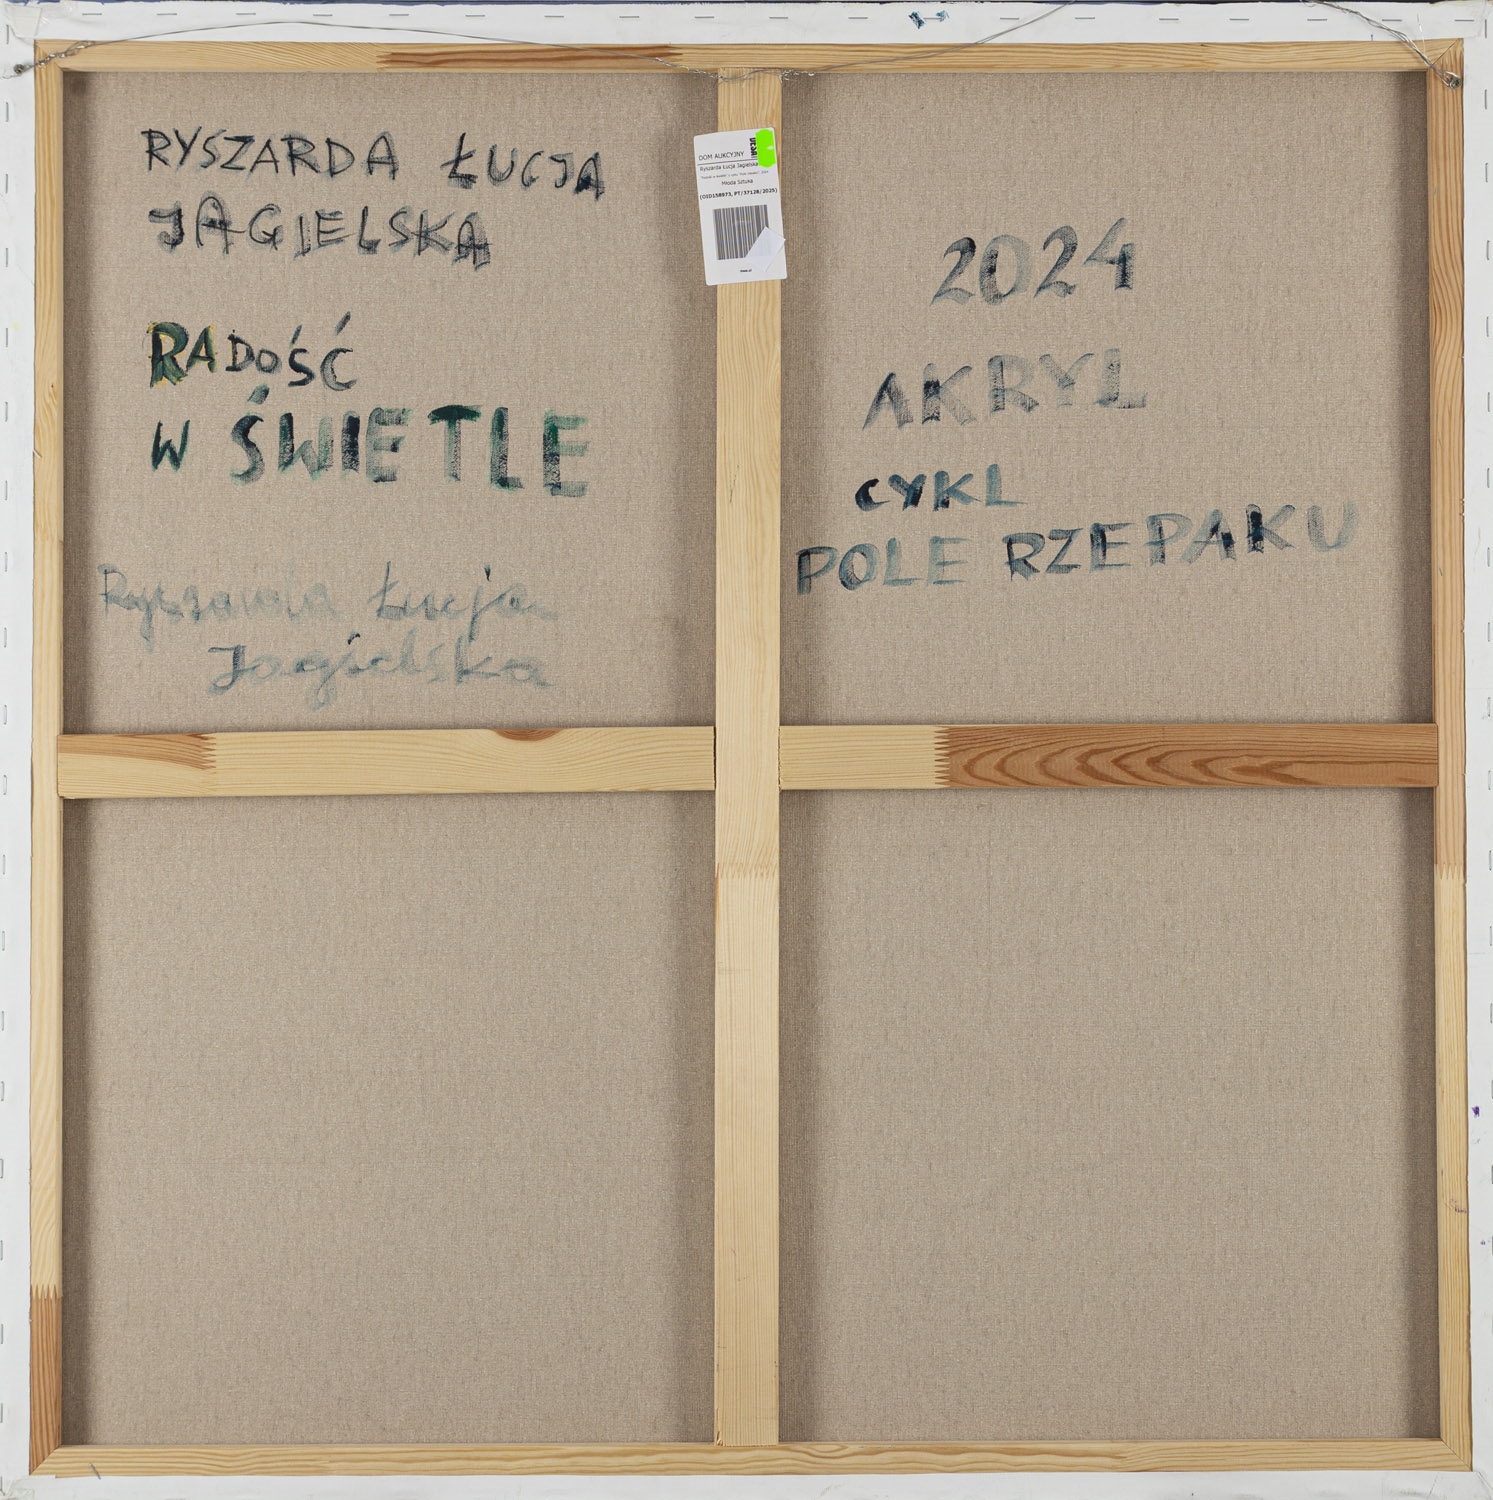 RYSZARDA ŁUCJA
JAGIELSKA
RADOŚĆ
W ŚWIETLE
Ryszarda Łucja
Jagielska
DOM AUKCYJNY
Ryszarda Łucja Jagielska
Młoda Sztuka
(OID158973, PT/37128/2025)
2024
AKRYL
CYKL
POLE RZEPAKU